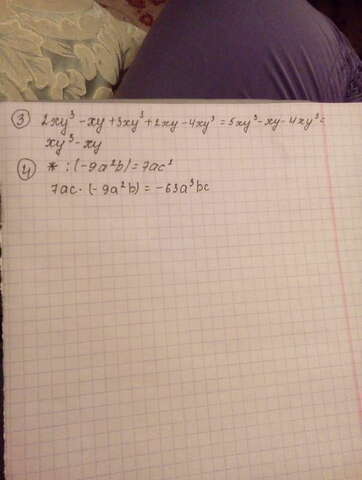 ③ 2xy³ - xy + 3xy³ + 2xy - 4xy³ = 5xy³ - xy - 4xy³ =
xy³ - xy
④ * : (-9a²b) = 7ac¹
7ac · (-9a²b) = -63a³bc